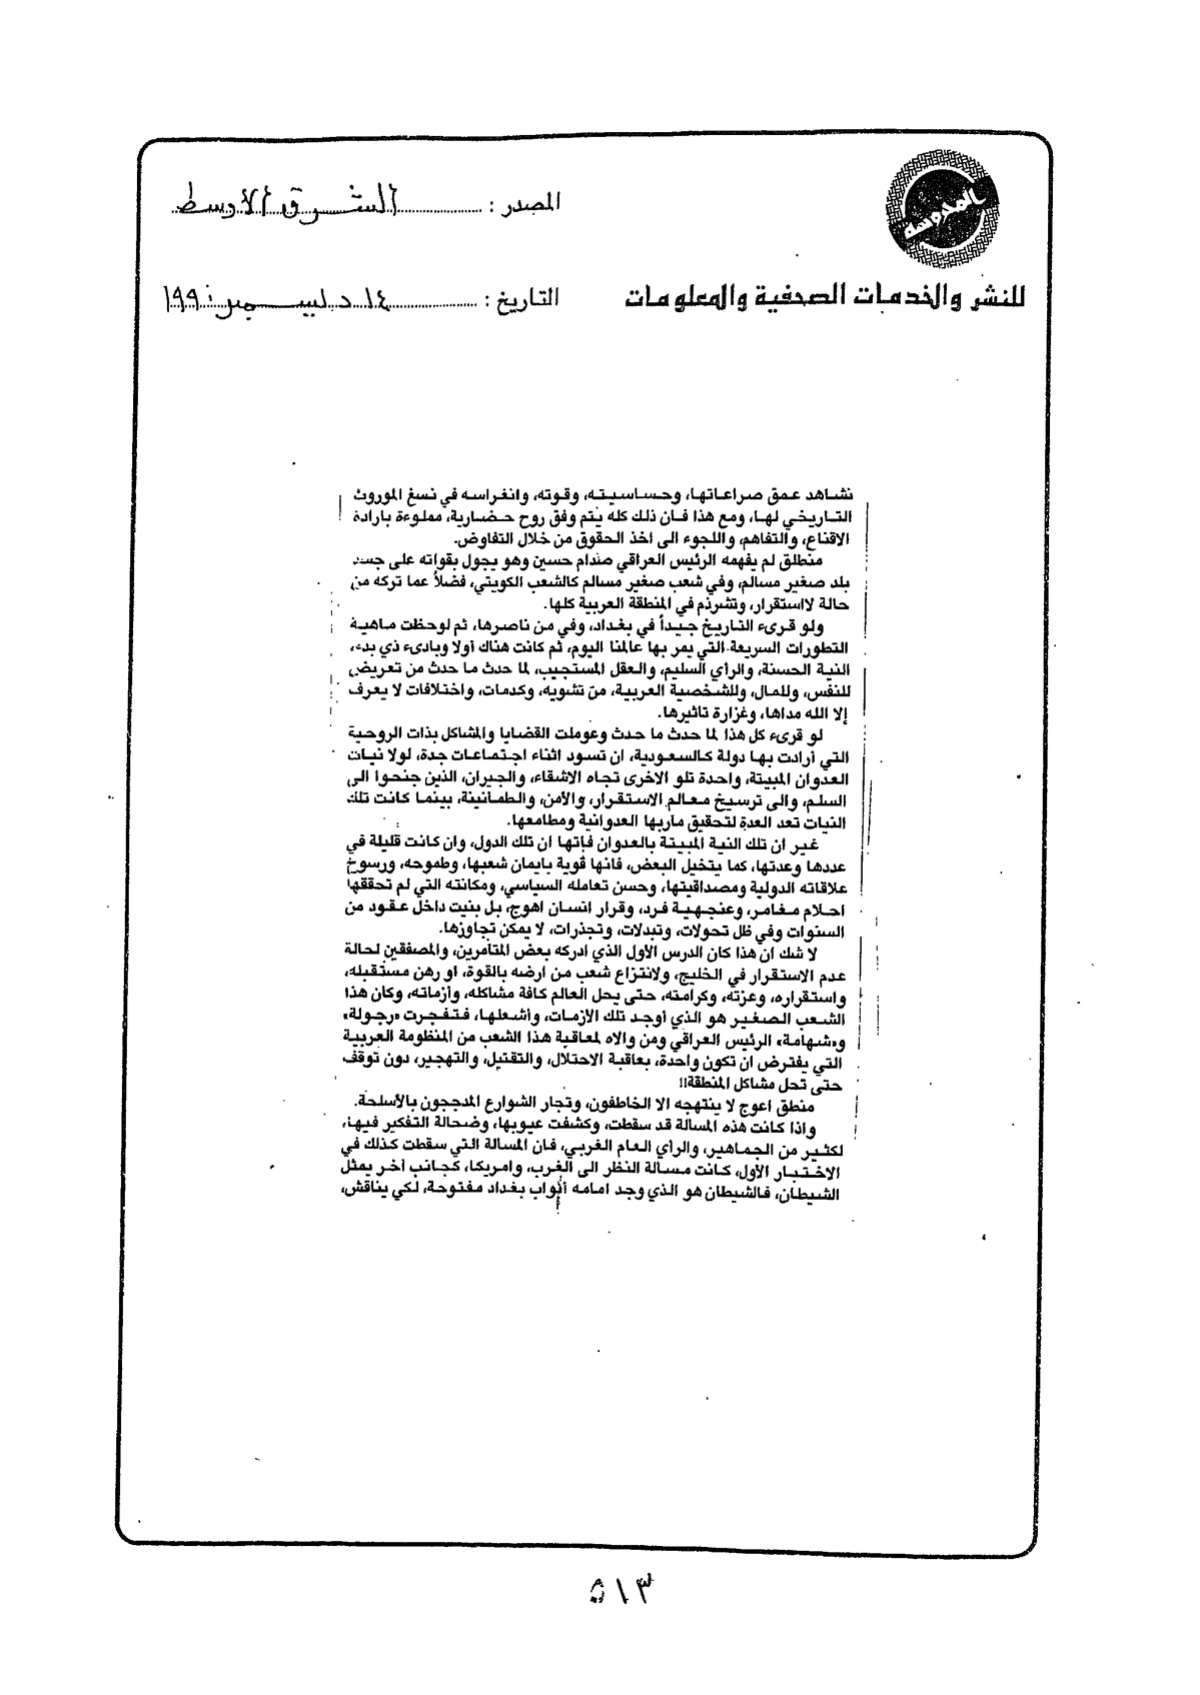 المصدر : الشرق الأوسط
المحروسة
للنشر والخدمات الصحفية والمعلومات
التاريخ : ١٤ ديسمبر ١٩٩٠
نشاهد عمق صراعاتها، وحساسيته، وقوته، وانغراسه في نسغ الموروث
التاريخي لها، ومع هذا فان ذلك كله يتم وفق روح حضارية، مملوءة بارادة
الاقناع، والتفاهم، واللجوء الى اخذ الحقوق من خلال التفاوض.
منطلق لم يفهمه الرئيس العراقي صدام حسين وهو يجول بقواته على جسد
بلد صغير مسالم، وفي شعب صغير مسالم كالشعب الكويتي، فضلاً عما تركه من
حالة لااستقرار، وتشرذم في المنطقة العربية كلها.
ولو قرىء التاريخ جيداً في بغداد، وفي من ناصرها، ثم لوحظت ماهية
التطورات السريعة التي يمر بها عالمنا اليوم، ثم كانت هناك أولا وبادىء ذي بدء،
النية الحسنة، والرأي السليم، والعقل المستجيب، لما حدث ما حدث من تعريض
للنفس، وللمال، وللشخصية العربية، من تشويه، وكدمات، واختلافات لا يعرف
إلا الله مداها، وغزارة تاثيرها.
لو قرىء كل هذا لما حدث ما حدث وعوملت القضايا والمشاكل بذات الروحية
التي أرادت بها دولة كالسعودية، ان تسود اثناء اجتماعات جدة، لولا نيات
العدوان المبيتة، واحدة تلو الاخرى تجاه الاشقاء، والجيران، الذين جنحوا الى
السلم، والى ترسيخ معالم الاستقرار، والأمن، والطمانينة، بينما كانت تلك
النيات تعد العدة لتحقيق ماربها العدوانية ومطامعها.
غير ان تلك النية المبيتة بالعدوان فاتها ان تلك الدول، وان كانت قليلة في
عددها وعدتها، كما يتخيل البعض، فانها قوية بايمان شعبها، وطموحه، ورسوخ
علاقاته الدولية ومصداقيتها، وحسن تعامله السياسي، ومكانته التي لم تحققها
احلام مغامر، وعنجهية فرد، وقرار انسان اهوج، بل بنيت داخل عقود من
السنوات وفي ظل تحولات، وتبدلات، وتجذرات، لا يمكن تجاوزها.
لا شك ان هذا كان الدرس الأول الذي ادركه بعض المتآمرين، والمصفقين لحالة
عدم الاستقرار في الخليج، ولانتزاع شعب من ارضه بالقوة، او رهن مستقبله،
واستقراره، وعزته، وكرامته، حتى يحل العالم كافة مشاكله، وأزماته، وكان هذا
الشعب الصغير هو الذي أوجد تلك الأزمات، وأشعلها، فتفجرت «رجولة»
و«شهامة» الرئيس العراقي ومن والاه لمعاقبة هذا الشعب من المنظومة العربية
التي يفترض ان تكون واحدة، بعاقبة الاحتلال، والتقتيل، والتهجير، دون توقف
حتى تحل مشاكل المنطقة!!
منطق اعوج لا ينتهجه الا الخاطفون، وتجار الشوارع المدججون بالأسلحة.
واذا كانت هذه المسالة قد سقطت، وكشفت عيوبها، وضحالة التفكير فيها،
لكثير من الجماهير، والرأي العام الغربي، فان المسالة التي سقطت كذلك في
الاختبار الأول، كانت مسالة النظر الى الغرب، وامريكا، كجانب آخر يمثل
الشيطان، فالشيطان هو الذي وجد امامه أبواب بغداد مفتوحة، لكي يناقش،
٥١٣